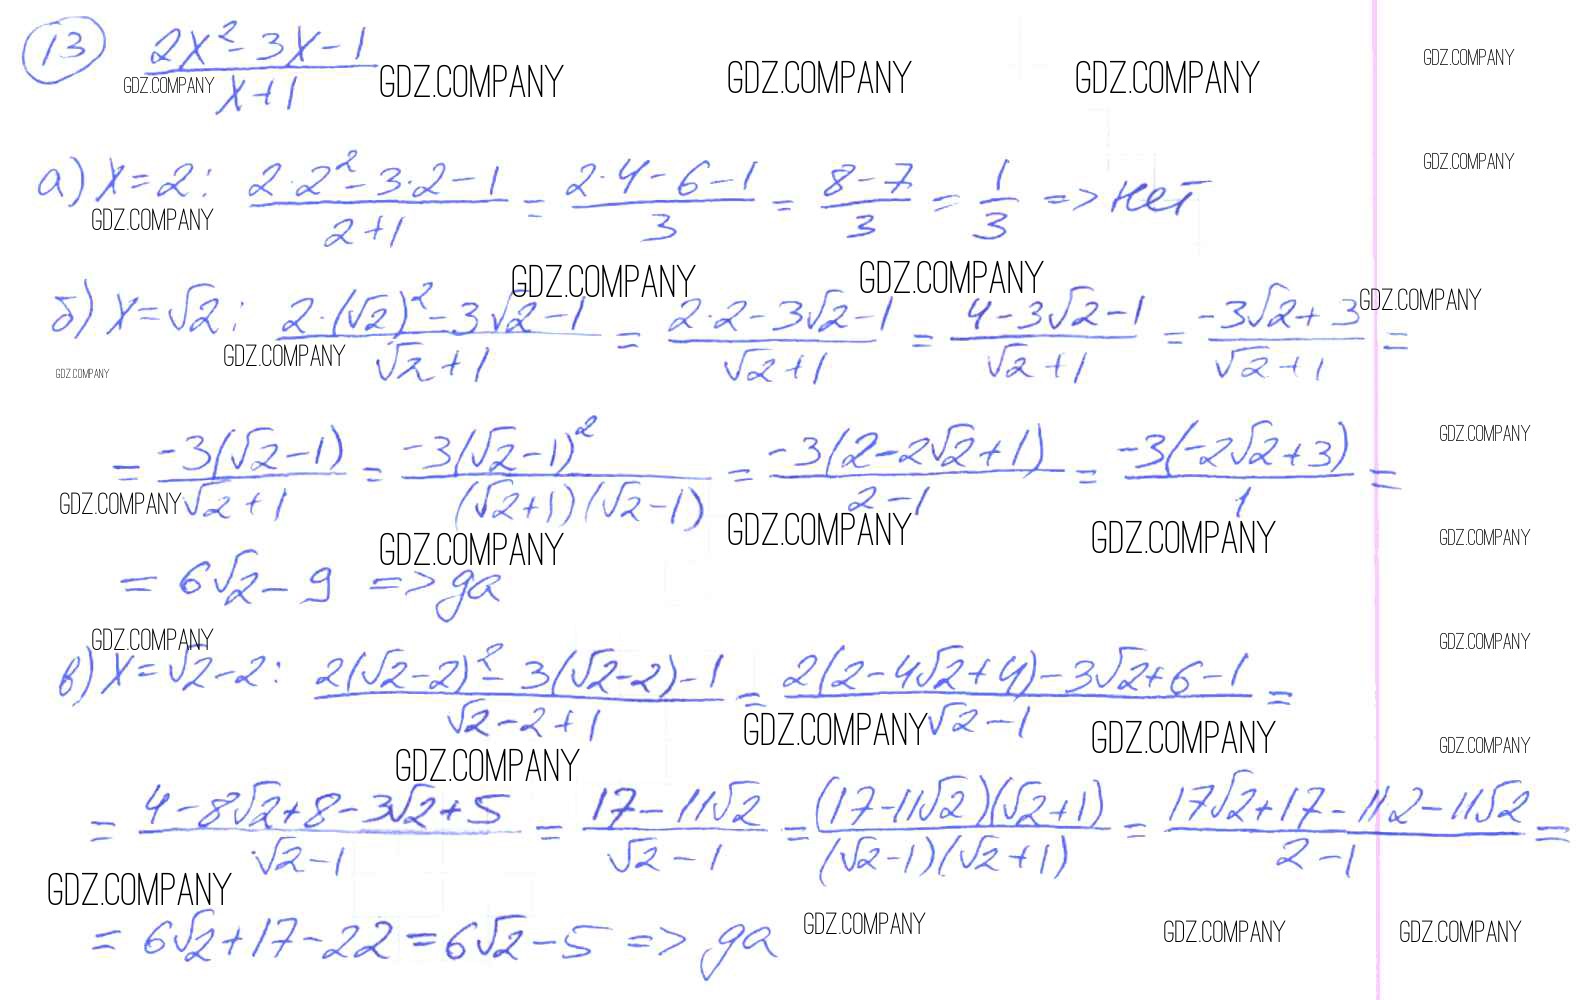 13 (2x² - 3x - 1)/(x + 1)
GDZ.COMPANY GDZ.COMPANY GDZ.COMPANY GDZ.COMPANY GDZ.COMPANY
GDZ.COMPANY
а) x = 2: (2·2² - 3·2 - 1)/(2 + 1) = (2·4 - 6 - 1)/3 = (8 - 7)/3 = 1/3 => нет
GDZ.COMPANY
GDZ.COMPANY GDZ.COMPANY GDZ.COMPANY
б) x = √2: (2·(√2)² - 3√2 - 1)/(√2 + 1) = (2·2 - 3√2 - 1)/(√2 + 1) = (4 - 3√2 - 1)/(√2 + 1) = (-3√2 + 3)/(√2 + 1) =
GDZ.COMPANY
GDZ.COMPANY
GDZ.COMPANY
= (-3(√2 - 1))/(√2 + 1) = (-3(√2 - 1)²)/((√2 + 1)(√2 - 1)) = (-3(2 - 2√2 + 1))/(2 - 1) = (-3(-2√2 + 3))/1 =
GDZ.COMPANY
GDZ.COMPANY GDZ.COMPANY GDZ.COMPANY GDZ.COMPANY
= 6√2 - 9 => да
GDZ.COMPANY GDZ.COMPANY
в) x = √2 - 2: (2(√2 - 2)² - 3(√2 - 2) - 1)/(√2 - 2 + 1) = (2(2 - 4√2 + 4) - 3√2 + 6 - 1)/(√2 - 1) =
GDZ.COMPANY GDZ.COMPANY GDZ.COMPANY
GDZ.COMPANY
= (4 - 8√2 + 8 - 3√2 + 5)/(√2 - 1) = (17 - 11√2)/(√2 - 1) = ((17 - 11√2)(√2 + 1))/((√2 - 1)(√2 + 1)) = (17√2 + 17 - 11·2 - 11√2)/(2 - 1) =
GDZ.COMPANY
= 6√2 + 17 - 22 = 6√2 - 5 => да
GDZ.COMPANY GDZ.COMPANY GDZ.COMPANY